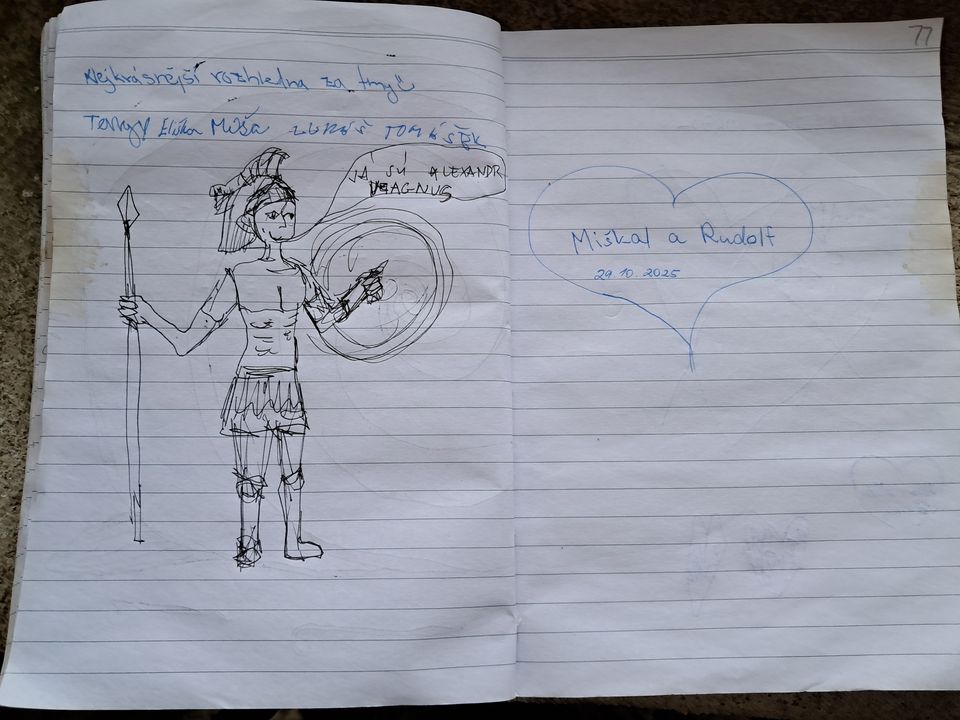 Nejkrásnější rozhledna za tmy
Eliška Míša LUKÁŠ TOMÁŠEK
JÁ SÚ ALEXANDR
MAGNUS
77
Miškal a Rudolf
29.10.2025